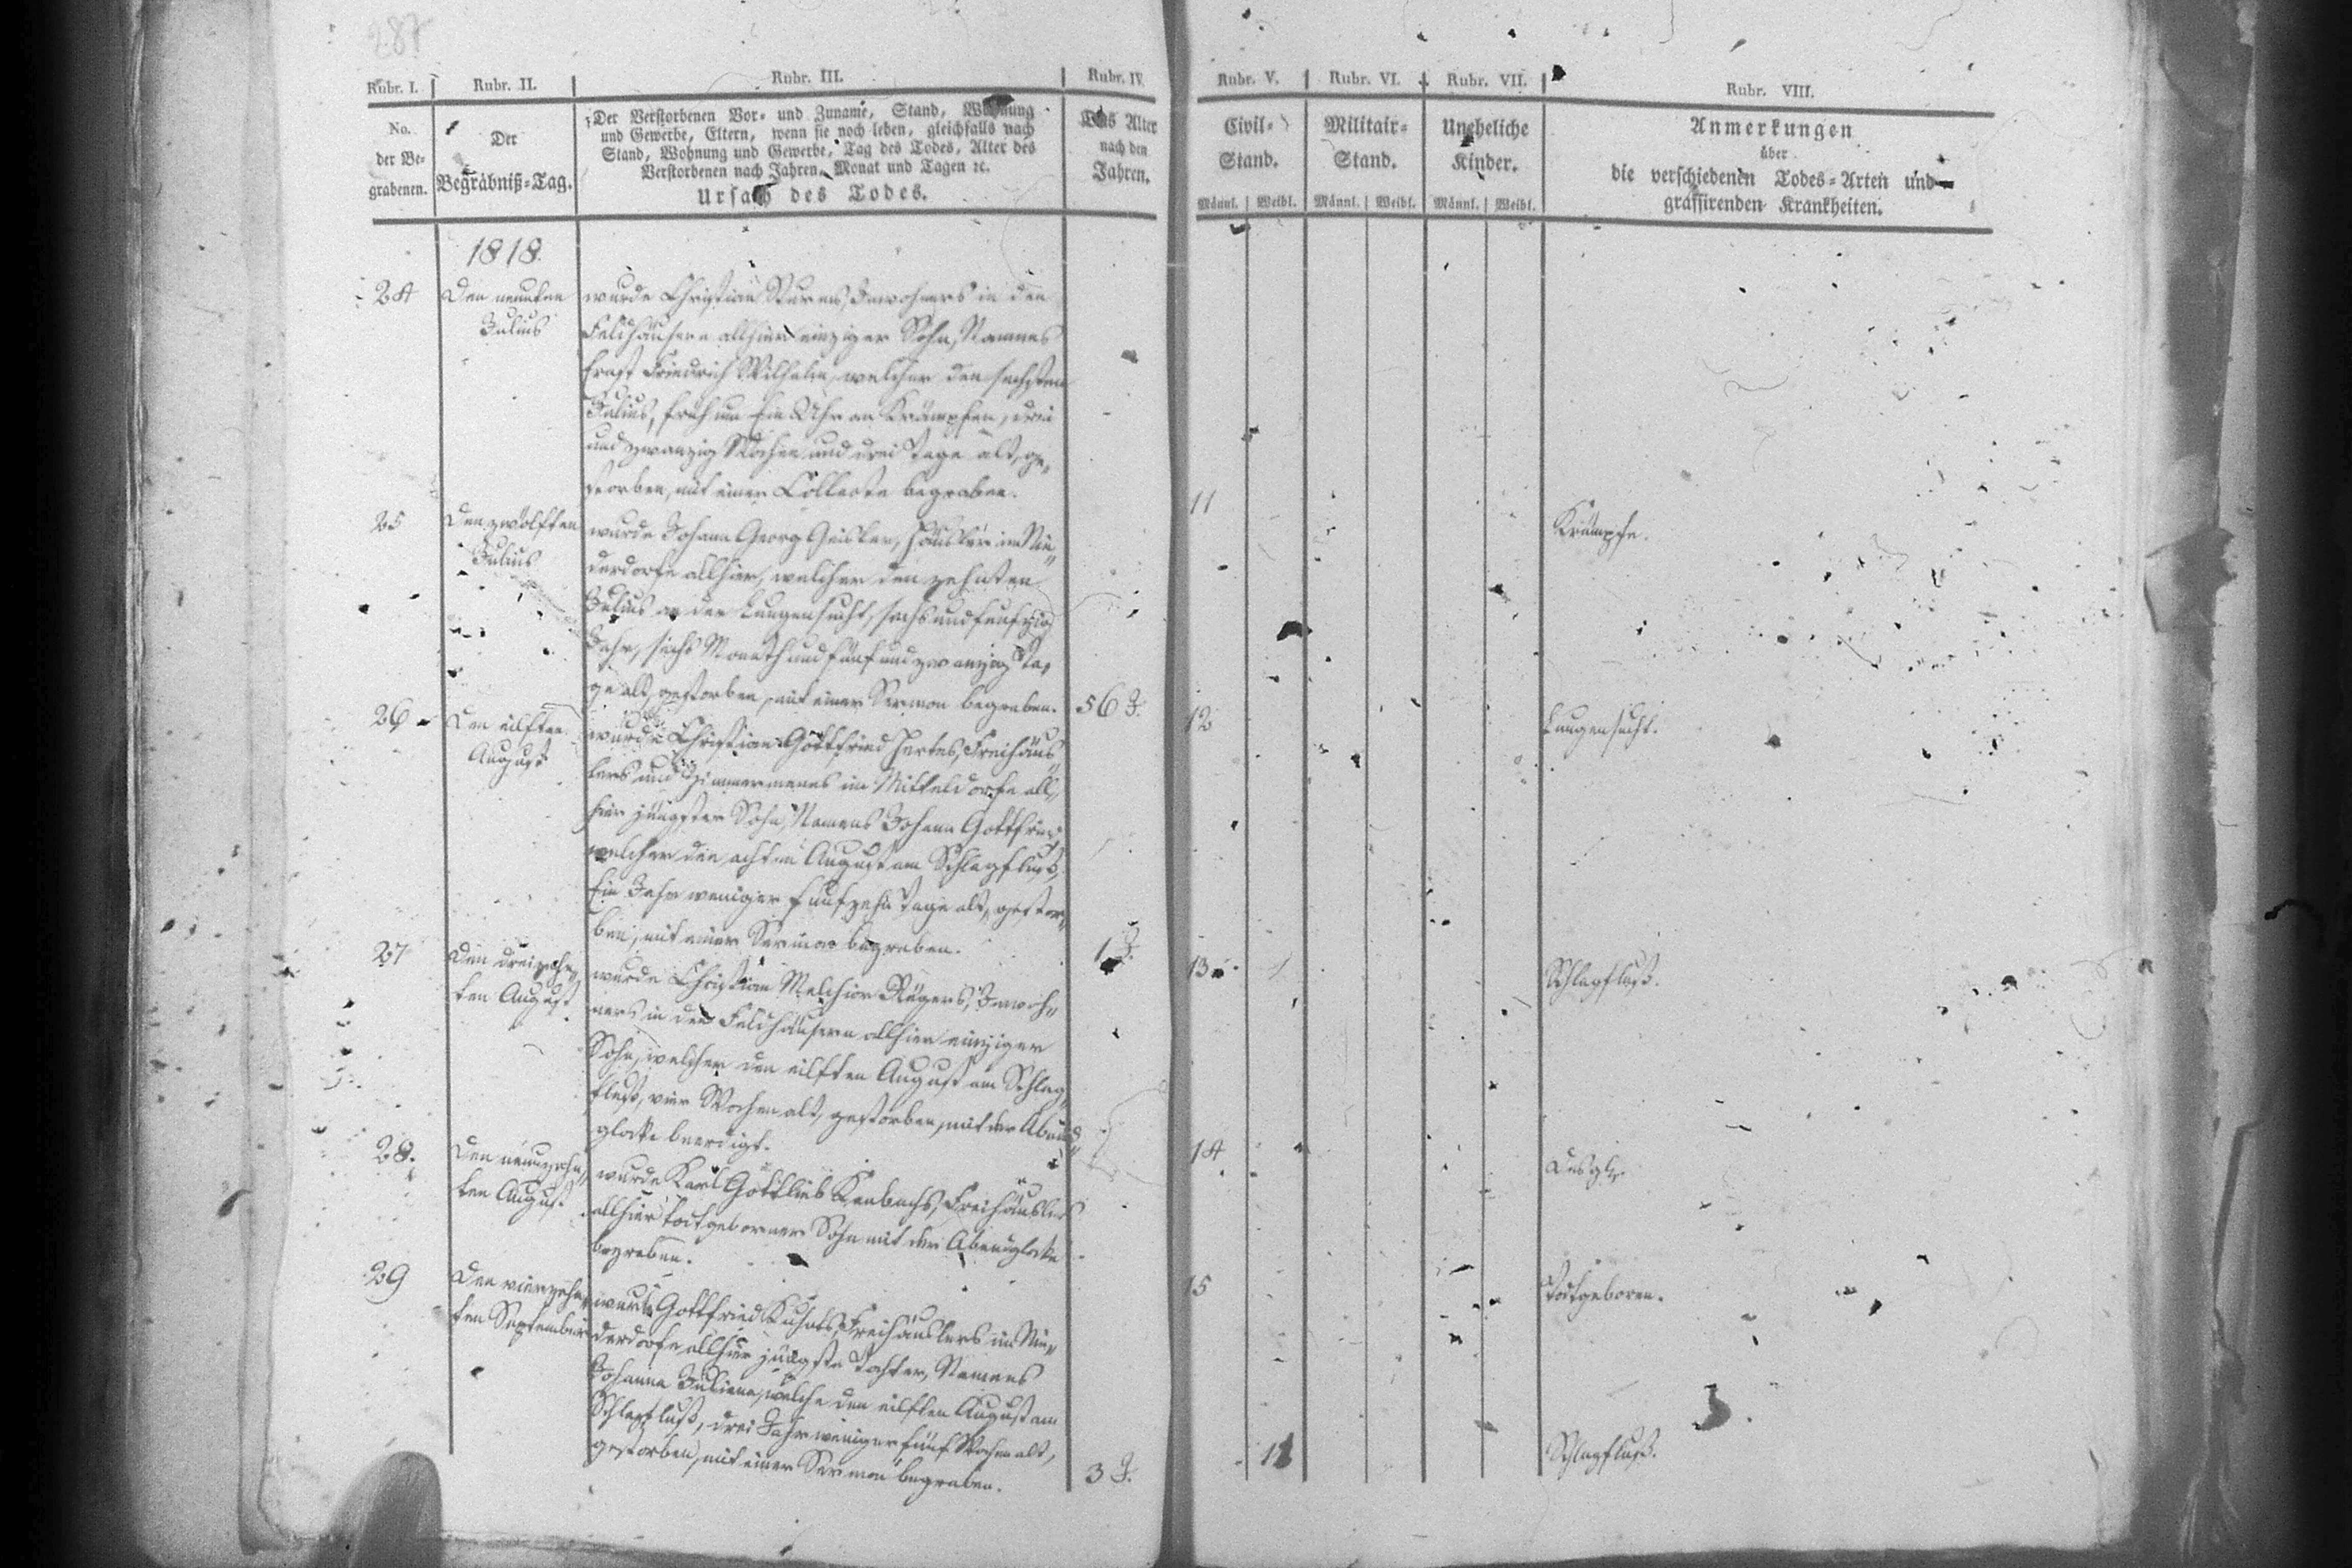 287
Rubr. I. Rubr. II. Rubr. III. Rubr. IV. Rubr. V. Rubr. VI. Rubr. VII. Rubr. VIII.
No.
der Be-
grabenen.
Der
Begräbniß-Tag.
Der Verstorbenen Vor- und Zuname, Stand, Wohnung
und Gewerbe, Eltern, wenn sie noch leben, gleichfalls nach
Stand, Wohnung und Gewerbe, Tag des Todes, Alter des
Verstorbenen nach Jahren, Monat und Tagen ꝛc.
Ursach des Todes.
Das Alter
nach den
Jahren.
Civil-
Stand.
Männl. Weibl.
Militair-
Stand.
Männl. Weibl.
Uneheliche
Kinder.
Männl. Weibl.
Anmerkungen
über
die verschiedenen Todes-Arten und
grassirenden Krankheiten.
1818.
24
Den neunten
Julius
wurde Christian Inwohners in den
Feldhäusern allhier einziger Sohn, Namens
Ernst Friedrich Wilhelm, welcher den sechsten
Julius, früh um Ein Uhr an Krämpfen, drei
und zwanzig Wochen und drei Tage alt, ge-
storben, mit einer Collecte begraben.
11
Krämpfe.
25
Den zwölften
Julius
wurde Johann Georg Geisler, Häusler im Nie-
derdorfe allhier, welcher den zehnten
Julius an der Lungensucht, sechs und funfzig
Jahr, sechs Monath und fünf und zwanzig Ta-
ge alt, gestorben, mit einer Sermon begraben.
56 J.
12
Lungensucht.
26
Den eilften
August
wurde Christian Gottfried Freihäus-
lers und Zimmermanns im Mitteldorfe all-
hier jüngster Sohn, Namens Johann Gottfried
welcher den achten August am Schlagfluß,
Ein Jahr weniger funfzehn Tage alt, gestor-
ben, mit einer Sermon begraben.
1 J.
13
Schlagfluß.
27
Den dreizehn-
ten August
wurde Christian Melchior Inwoh-
ners in den Feldhäusern allhier einziger
Sohn, welcher den eilften August am Schlag-
fluß, vier Wochen alt, gestorben, mit der Abend-
glocke beerdigt.
14
28.
Den neunzehn-
ten August
wurde Karl Gottlieb Freihäuslers
allhier todtgeborner Sohn mit der Abendglocke
begraben.
15
Todtgeboren.
29
Den vierzehn-
ten September
wurde Gottfried Freihäuslers im Nie-
derdorfe allhier jüngste Tochter, Namens
Johanna Juliana, welche den eilften August am
Schlagfluß, drei Jahr weniger fünf Wochen alt,
gestorben, mit einer Sermon begraben.
3 J.
Schlagfluß.